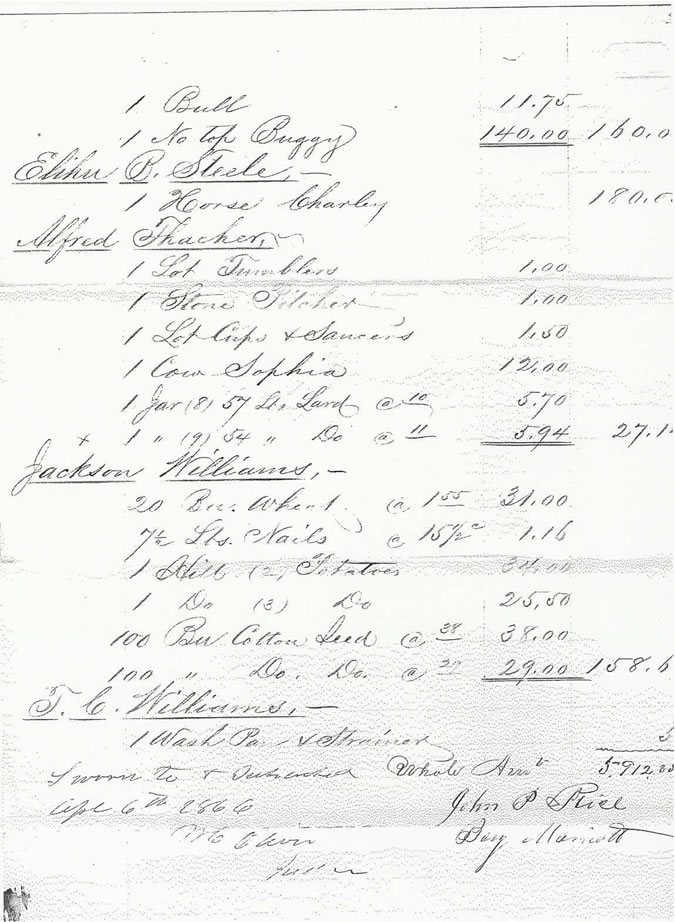 1 Bull 11.75
1 No top Buggy 140.00 160.0
Elihu B. Steele,—
1 Horse Charley 180.0
Alfred Thacher,
1 Lot Tumblers 1.00
1 Stone Pitcher 1.00
1 Lot Cups & Saucers 1.50
1 Cow Sophia 12.00
1 Jar (8) 57 Lbs. Lard @ 10 5.70
+ 1 " (9) 54 " Do @ 11 5.94 27.1
Jackson Williams,—
20 Bu. Wheat @ 1 55 31.00
7½ Lbs. Nails @ 15½c 1.16
1 Hill (2) Potatoes 34.00
1 Do (3) Do 25.50
100 Bu Cotton Seed @ 38 38.00
100 " Do. Do. @ 29 29.00 158.6
T. C. Williams,—
1 Wash Pan & Strainer 5
Sworn to & Subscribed Whole Amt 5.912
Apl 6th 1866 John P Rice
Benj Marriott